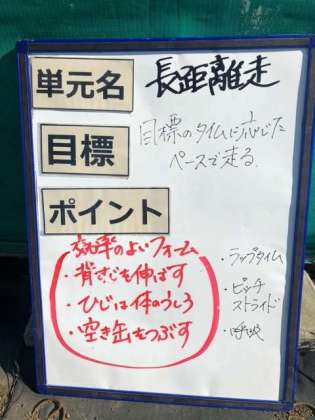 単元名
長距離走
目標
目標のタイムに応じた
ペースで走る
ポイント
効率のよいフォーム
・背すじを伸ばす
・ひじは体のうしろ
・空き缶をつぶす
・ラップタイム
・ピッチ
ストライド
・呼吸